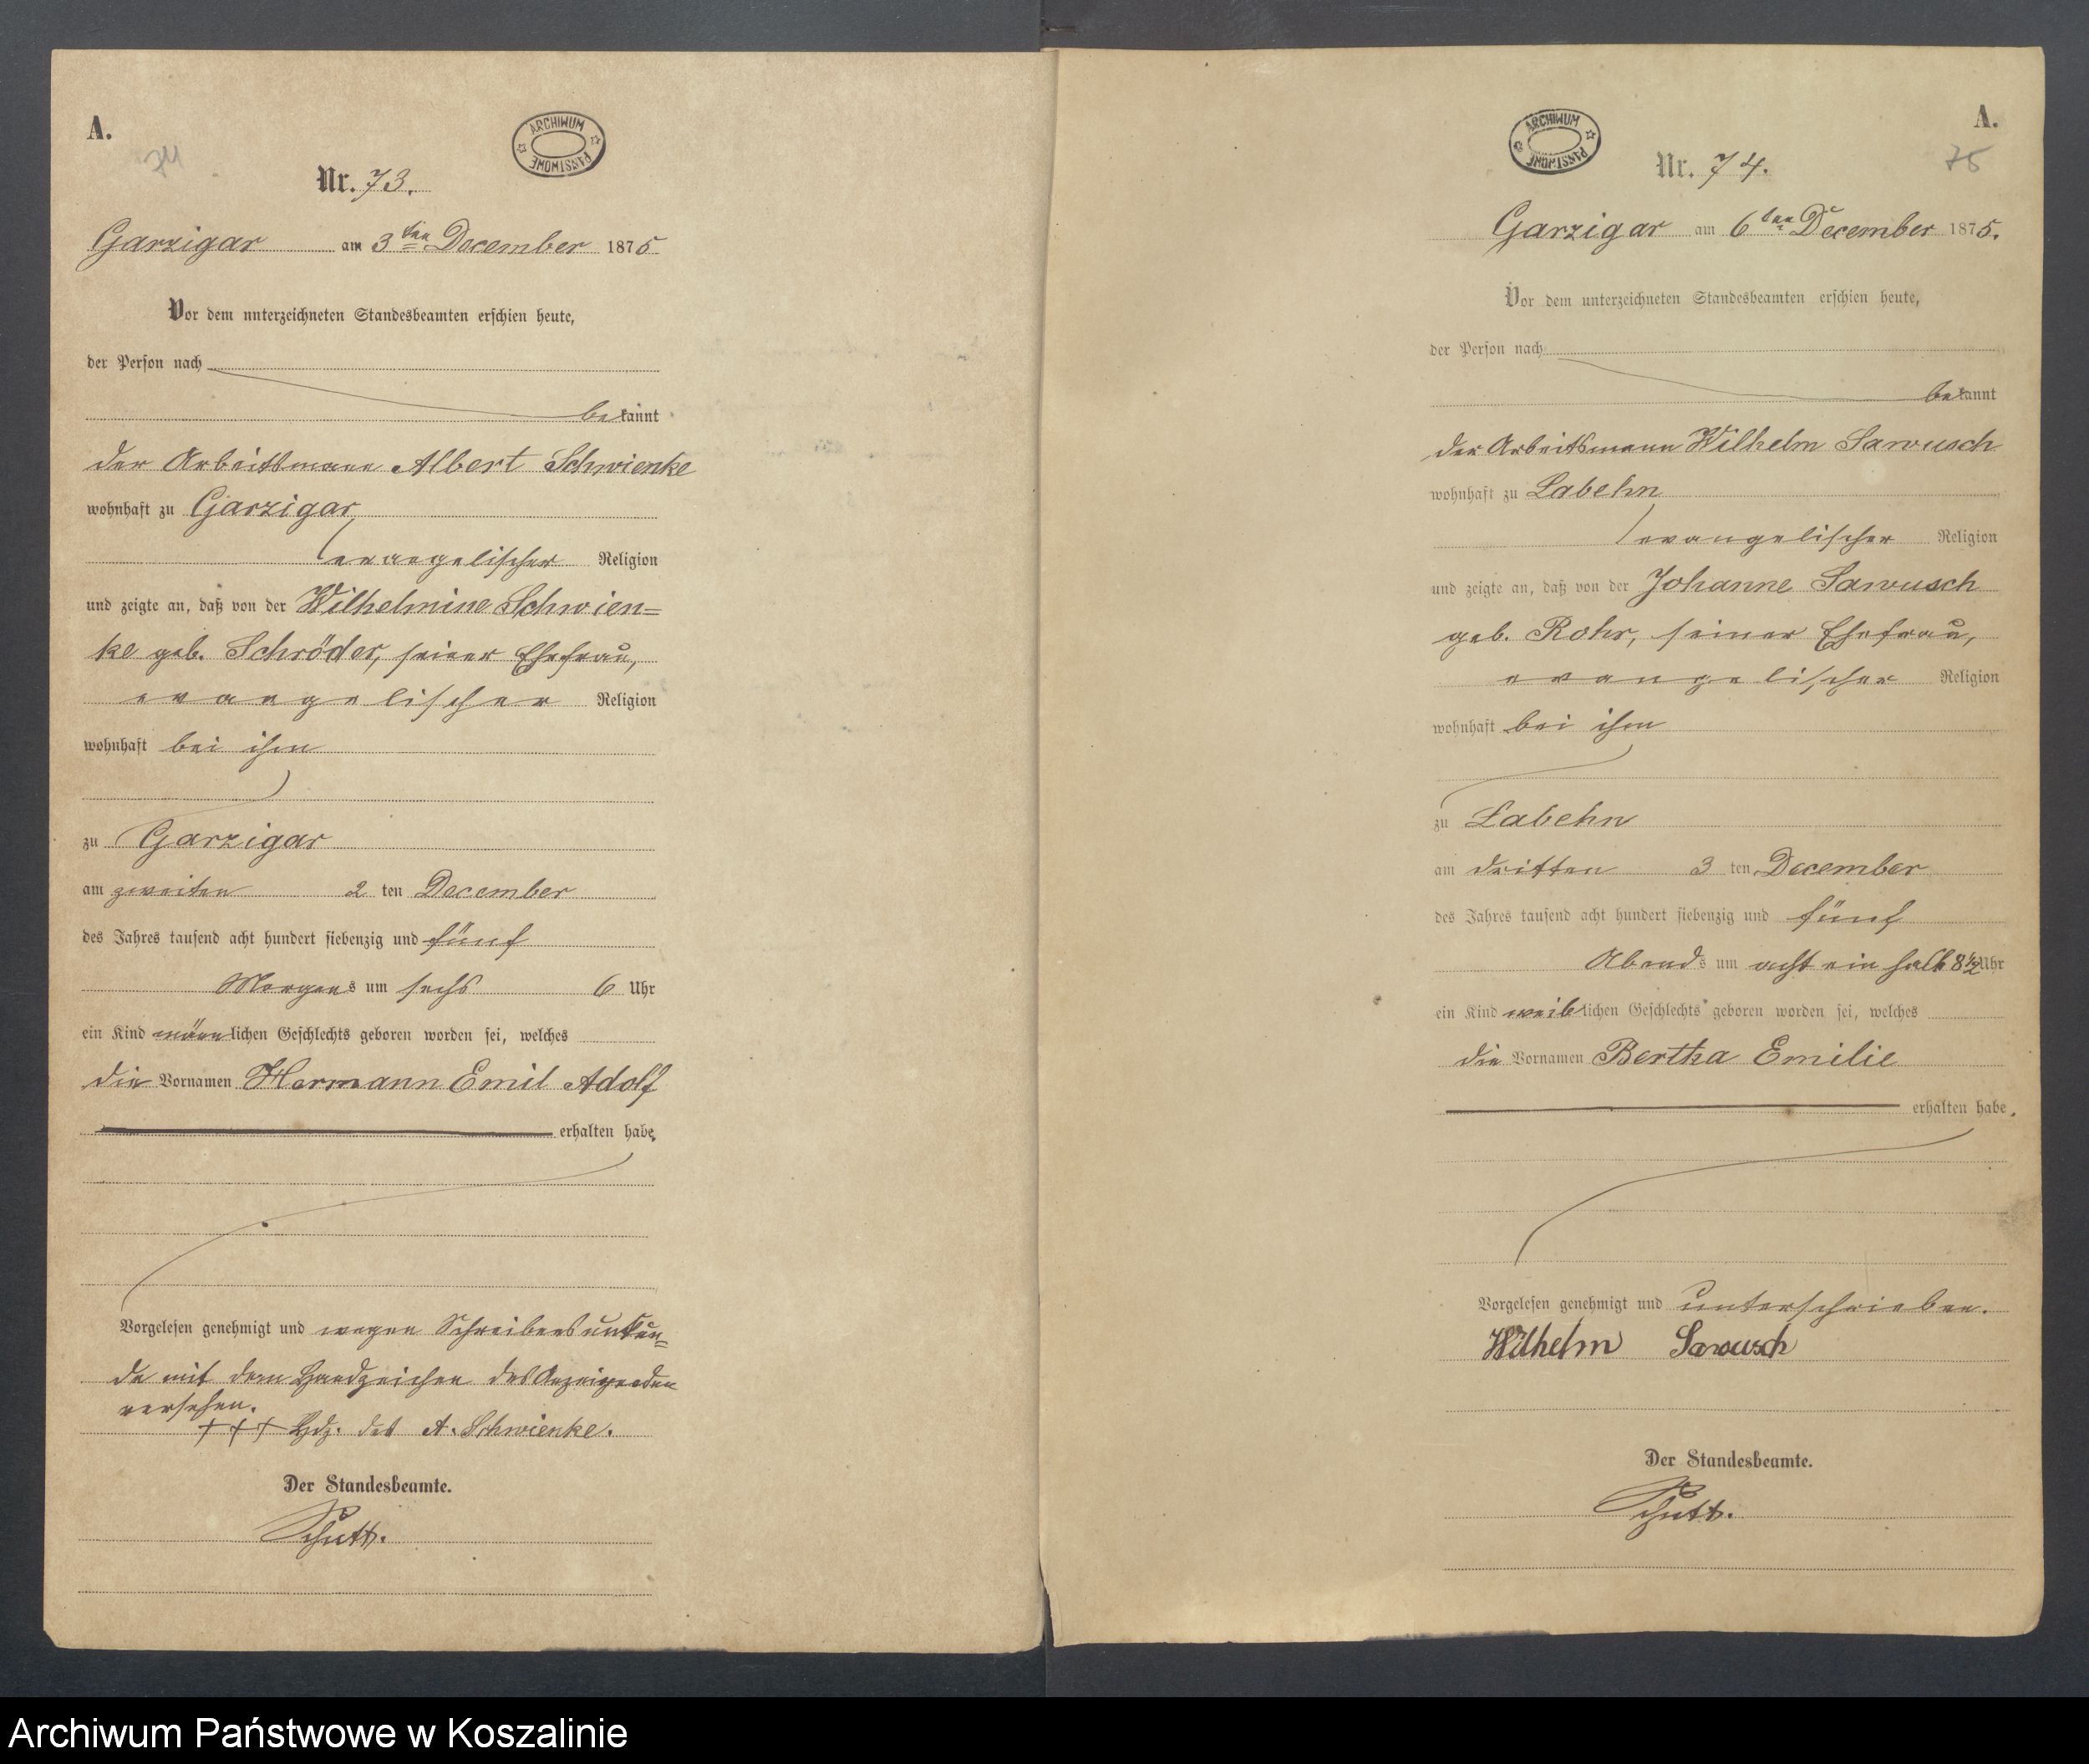 A.
74
ARCHIWUM PAŃSTWOWE
Nr. 73.
Garzigar am 3ten December 1875
Vor dem unterzeichneten Standesbeamten erschien heute,
der Person nach
bekannt
der Arbeitsmann Albert Schwienke
wohnhaft zu Garzigar
evangelischer Religion
und zeigte an, daß von der Wilhelmine Schwien=
ke geb. Schröder, seiner Ehefrau,
evangelischer Religion
wohnhaft bei ihm
zu Garzigar
am zweiten 2 ten December
des Jahres tausend acht hundert siebenzig und fünf
Morgens um sechs 6 Uhr
ein Kind männlichen Geschlechts geboren worden sei, welches
die Vornamen Hermann Emil Adolf
erhalten habe.
Vorgelesen genehmigt und wegen Schreibensunkun=
de mit dem Handzeichen des Anzeigenden
versehen.
+++ Hdz. des A. Schwienke.
Der Standesbeamte.
Schutt.
A.
75
ARCHIWUM PAŃSTWOWE
Nr. 74.
Garzigar am 6ten December 1875.
Vor dem unterzeichneten Standesbeamten erschien heute,
der Person nach
bekannt
der Arbeitsmann Wilhelm Sawusch
wohnhaft zu Labehn
evangelischer Religion
und zeigte an, daß von der Johanne Sawusch
geb. Rohr, seiner Ehefrau,
evangelischer Religion
wohnhaft bei ihm
zu Labehn
am dritten 3 ten December
des Jahres tausend acht hundert siebenzig und fünf
Abends um acht ein halb 8½ Uhr
ein Kind weiblichen Geschlechts geboren worden sei, welches
die Vornamen Bertha Emilie
erhalten habe.
Vorgelesen genehmigt und unterschrieben.
Wilhelm Sawusch
Der Standesbeamte.
Schutt.
Archiwum Państwowe w Koszalinie